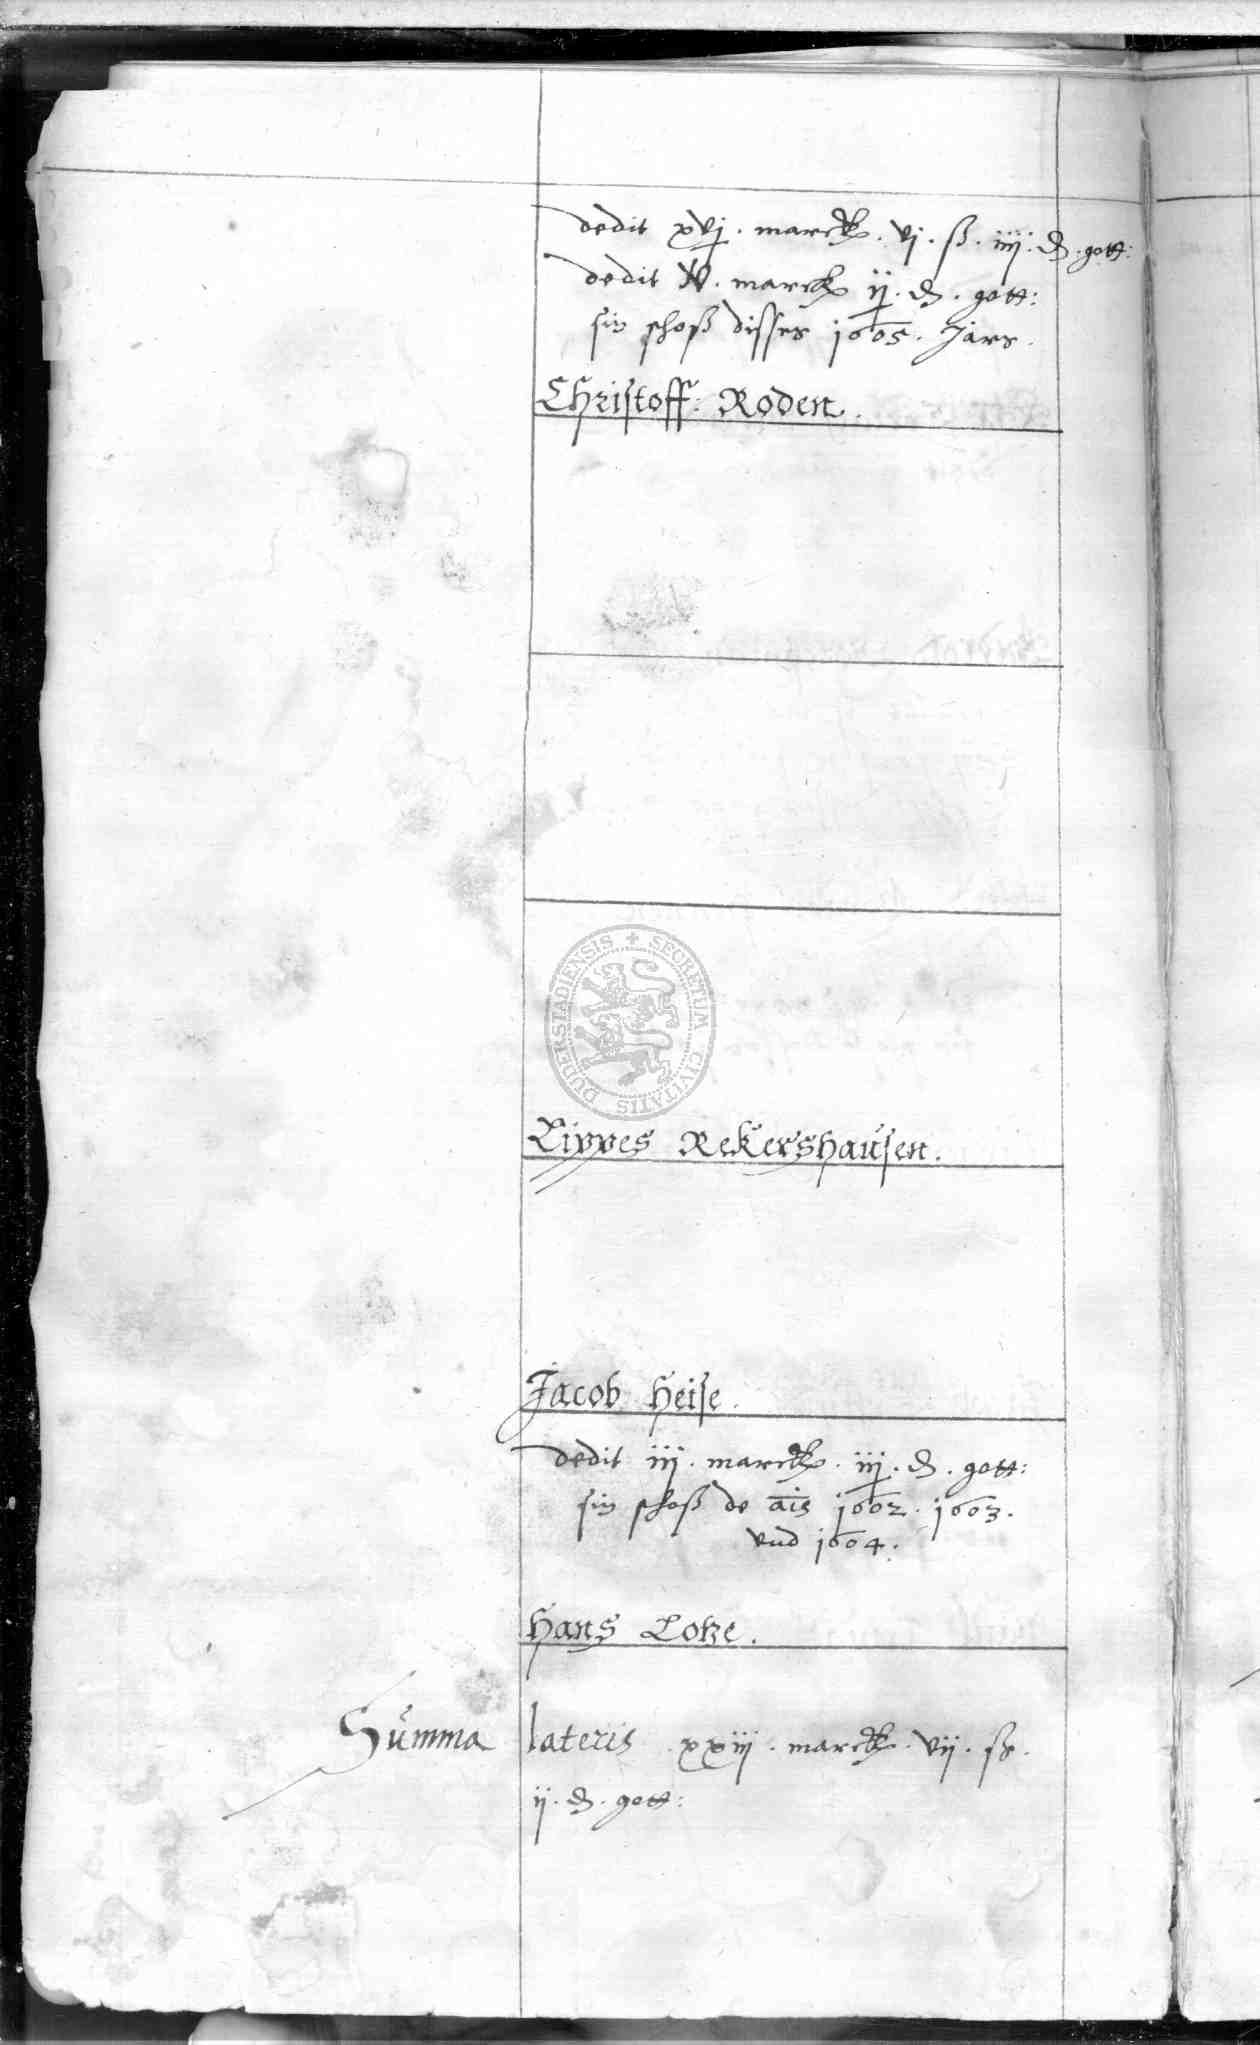 dedit xvj. marck. vj. ß. iiij. ₰. gott:
dedit iv. marck ij. ₰. gott:
sin schoß disses 1605. Jars.
Christoff Roden.
SECRETUM CIVITATIS DUDERSTADIENSIS
Lippes Rekershausen.
Jacob Heise.
dedit iij. marck. iij. ₰. gott:
sin schoß de ais 1602. 1603.
vnd 1604.
Hans Lotze.
Summa lateris xxiij. marck. vij. ß.
ij. ₰. gott: